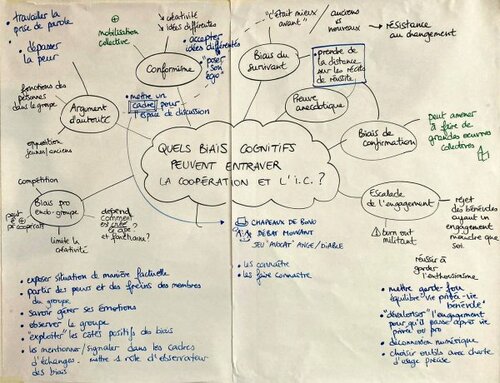 • travailler la
prise de parole
• dépasser
la peur
fonctions des
personnes
dans le groupe
Argument
d'autorité
opposition
jeunes/anciens
⊕
mobilisation
collective
Conformisme
créativité
idées différentes
• accepter
idées différentes
• "poser
son
égo"
• mettre un
cadre pour
l'espace de discussion
"c'était mieux
avant"
anciens
≠
nouveaux
Biais du
survivant
→ résistance
au changement
• prendre de
la distance
sur les récits
de réussite
Preuve
anecdotique
Biais de
confirmation
peut amener
à faire de
grandes oeuvres
collectives
QUELS BIAIS COGNITIFS
PEUVENT ENTRAVER
LA COOPÉRATION ET L'I.C.?
compétition
Biais pro
endo-groupe
peut ê
⊕ coopératif
limite la
créativité
dépend
comment
est créé
le gpe
et fonctionne?
CHAPEAUX DE BONO
DÉBAT MOUVANT
JEU "AVOCAT" ANGE/DIABLE
• les connaître
• les faire connaître
Escalade
de l'engagement
burn out
militant
rejet
des bénévoles
ayant un
engagement
moindre que
soi.
réussir à
garder
l'enthousiasme
• exposer situation de manière factuelle
• partir des peurs et des freins des membres
du groupe
• savoir gérer ses émotions
• observer le groupe
• "exploiter" les côtés positifs du biais
• les mentionner/signaler dans les cadres
d'échanges - mettre 1 rôle d'observateur
des biais
• mettre garde-fou
équilibre vie privée - vie
bénévole
• "dévaloriser" l'engagement
pour qu'il passe après vie
privée ou pro
• déconnexion numérique
• choisir outils avec charte
d'usage précise